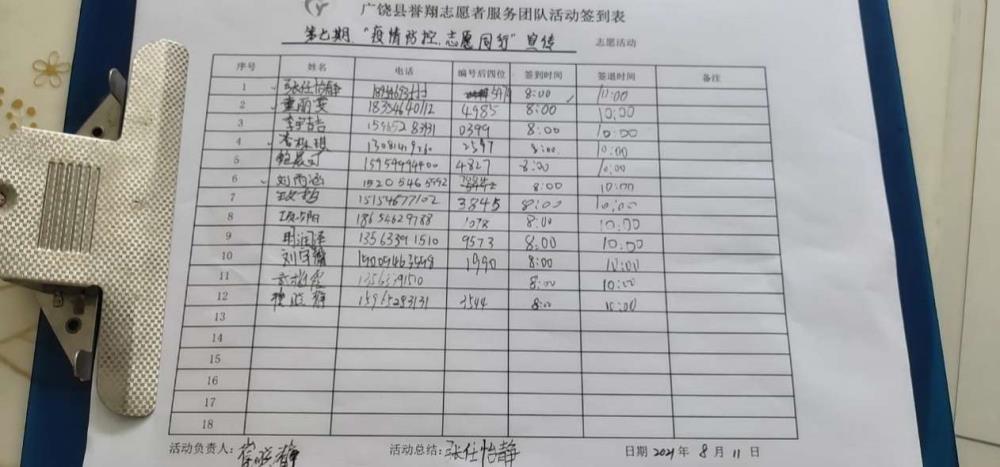 广饶县誉翔志愿者服务团队活动签到表
第七期"疫情防控,志愿同行"宣传 志愿活动
序号 姓名 电话 编号后四位 签到时间 签退时间 备注
1 张任怡静 8:00 10:00
2 董雨雯 18354640112 4985 8:00 10:00
3 李宇吉 15965283131 0399 8:00 10:00
4 2597 8:00 10:00
5 15959994400 4827 8:00 10:00
6 刘雨涵 15205465992 8:00 10:00
7 15154677102 3845 8:00 10:00
8 18654629788 1078 8:00 10:00
9 周润泽 13563391510 9573 8:00 10:00
10 19009463598 1990 8:00 10:00
11 13563391510 8:00 10:00
12 15965283131 3544 8:00 10:00
13
14
15
16
17
18
活动负责人: 活动总结:张任怡静 日期 2021年 8月 11日